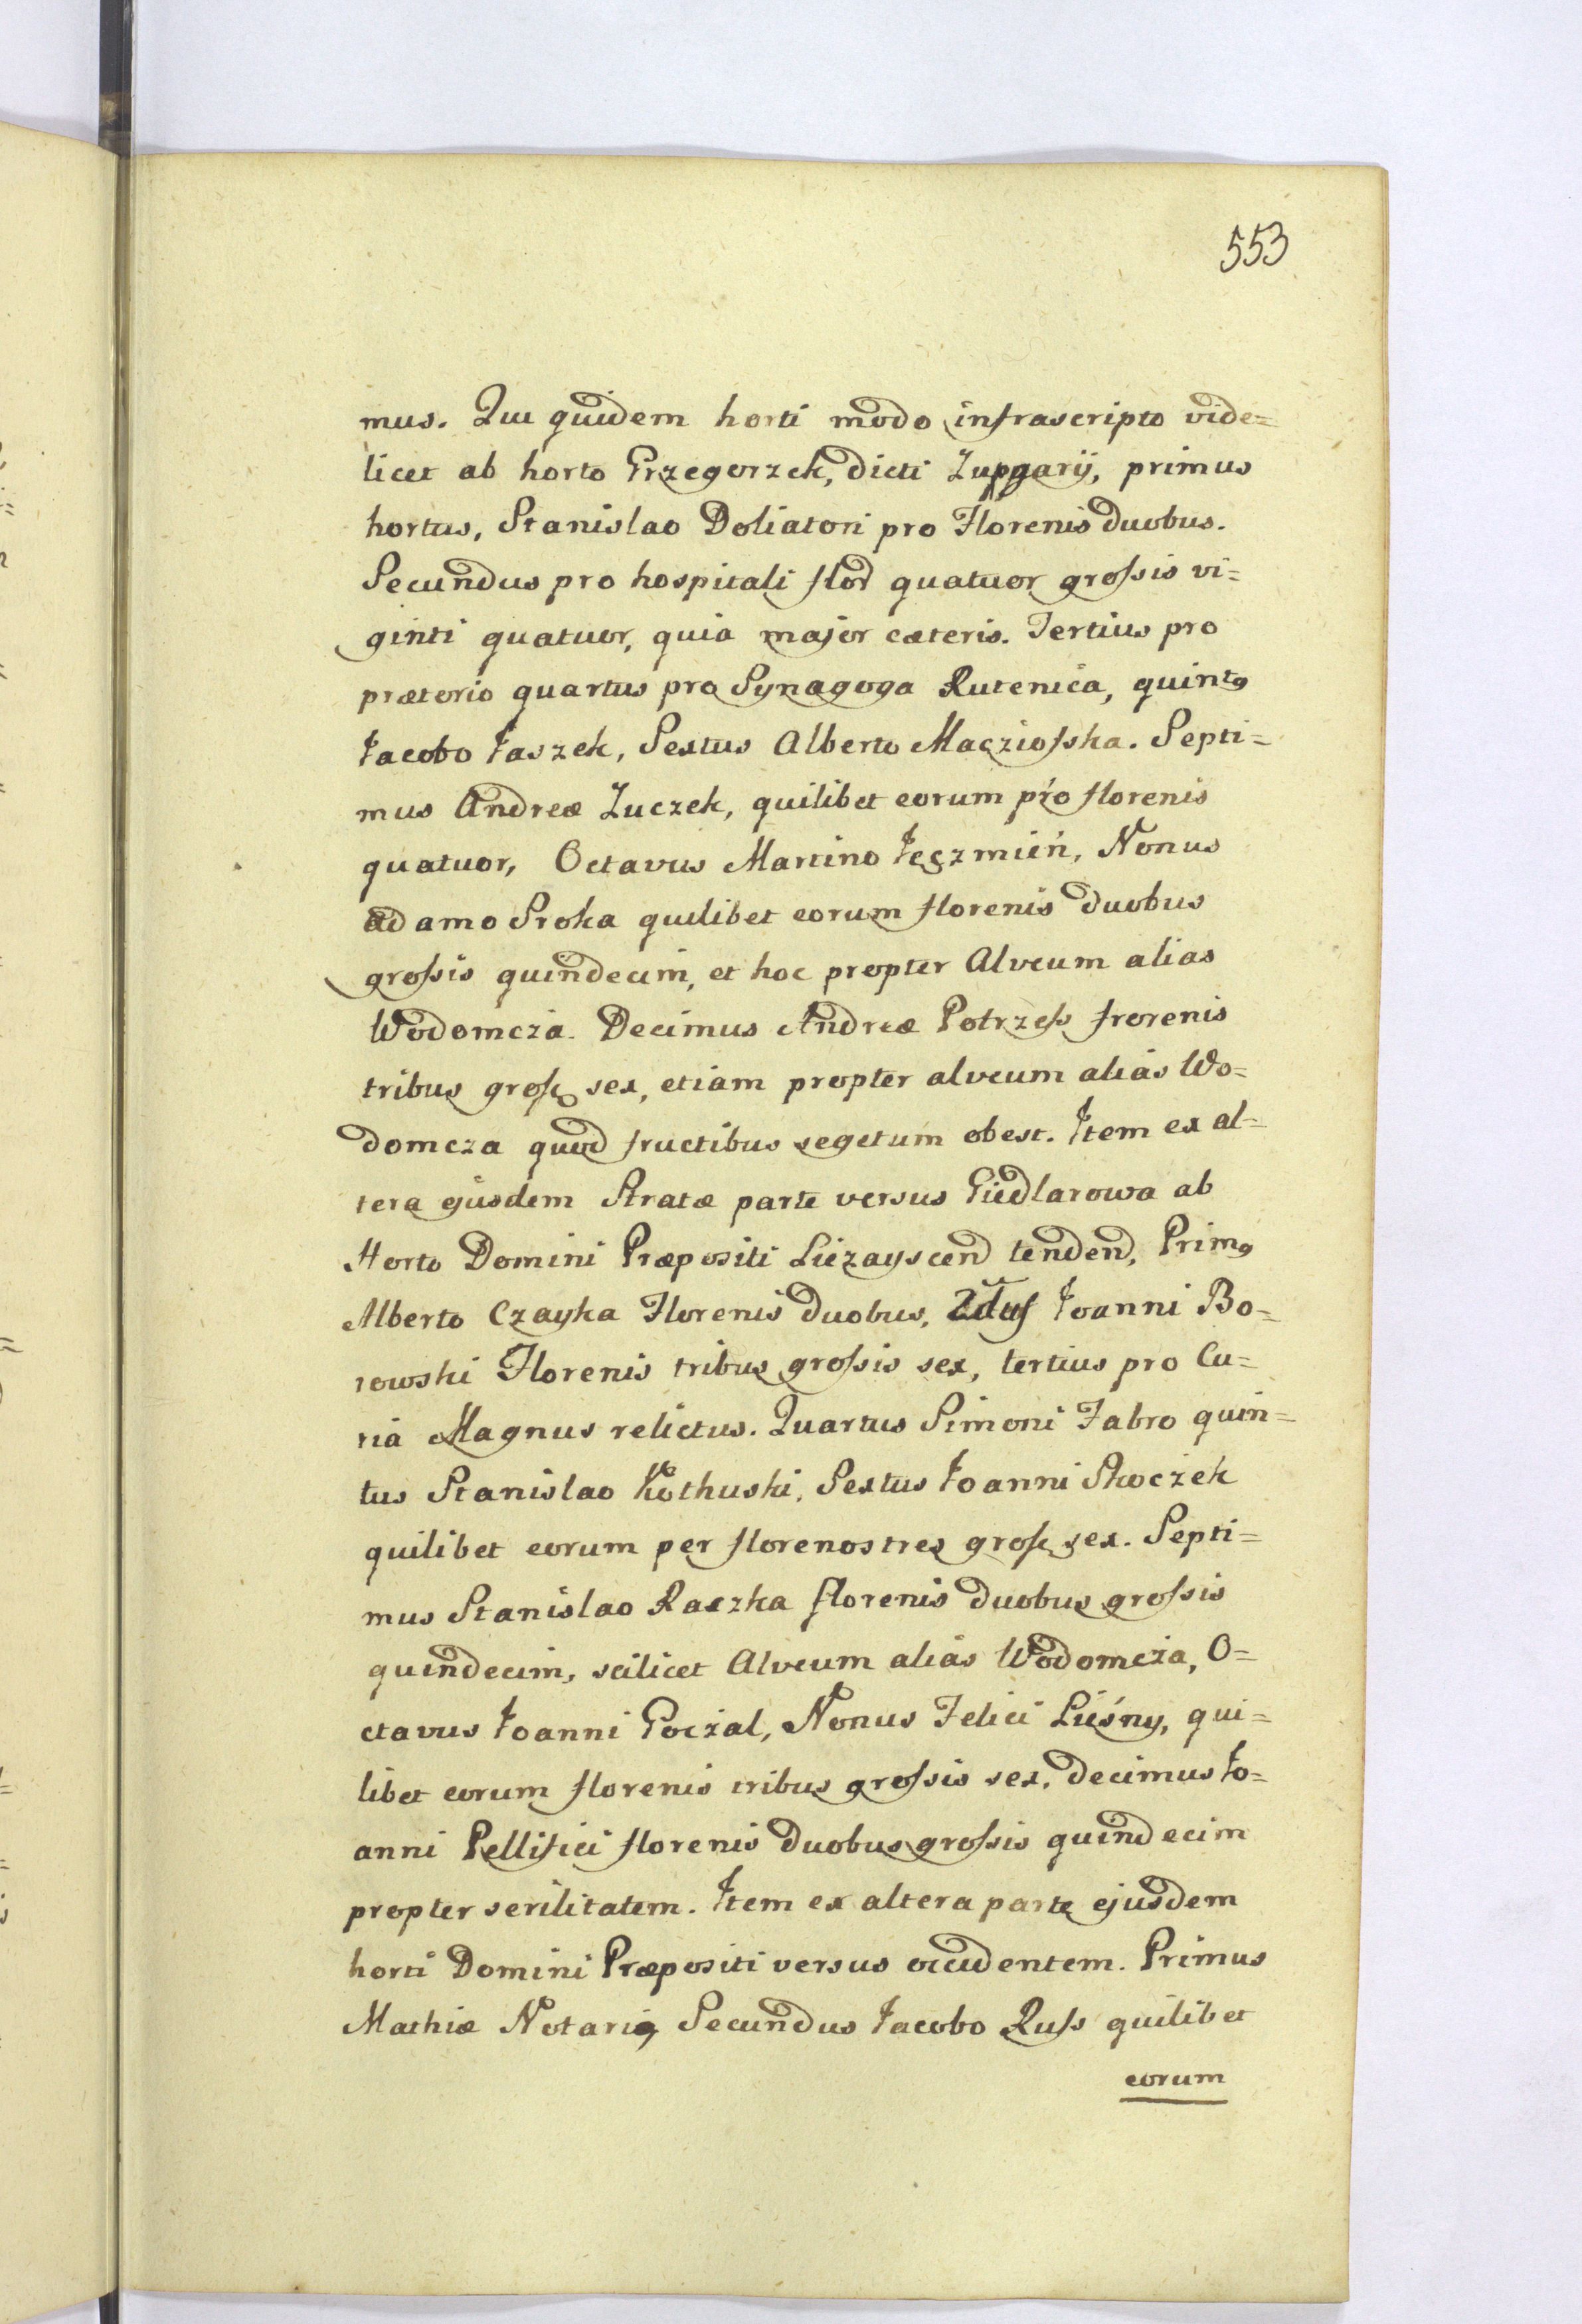 553
mus. Qui quidem horti modo infrascripto vide=
licet ab horto Grzegorzek, dicti Zupgarij, primus
hortus, Stanislao Doliatori pro Florenis duobus.
Secundus pro hospitali flor quatuor grossis vi=
ginti quatuor, quia major cæteris. Tertius pro
prætorio quartus pro Synagoga Rutenica, quintus
Jacobo Jaszek, Sextus Alberto Macziosska. Septi=
mus Andreæ Zuczek, quilibet eorum pro florenis
quatuor, Octavus Martino Jęczmień, Nonus
adamo Sroka quilibet eorum florenis duobus
grossis quindecim, et hoc propter Alveum alias
Wodomcza. Decimus Andreæ Potrzess frorenis
tribus gross sex, etiam propter alveum alias Wo=
domcza quod fructibus segetum obest. Item ex al=
tera ejusdem Stratæ parte versus Giedlarowa ab
Horto Domini Præpositi Liezayscen tenden, Primus
Alberto Czayka Florenis duobus, 2dus Joanni Bo=
rowski Florenis tribus grossis sex, tertius pro Cu=
ria Magnus relictus. Quartus Simoni Fabro quin=
tus Stanislao Kothuski, Sextus Joanni Skoczek
quilibet eorum per florenos tres gross sex. Septi=
mus Stanislao Raczka florenis duobus grossis
quindecim, scilicet Alveum alias Wodomcza, O=
ctavus Joanni Goczal, Nonus Felici Liesny, qui=
libet eorum florenis tribus grossis sex, decimus Jo=
anni Pellifici florenis duobus grossis quindecim
propter serilitatem. Item ex altera parte ejusdem
horti Domini Præpositi versus occidentem. Primus
Mathiæ Notario, Secundus Jacobo Russ quilibet
eorum